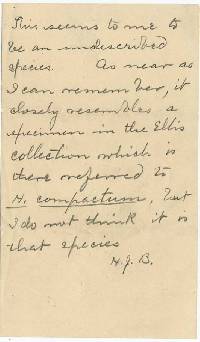 This seems to me to
be an undescribed
species. As near as
I can remember, it
closely resembles a
specimen in the Ellis
collection which is
there referred to
H. compactum, but
I do not think it is
that species
H. J. B.